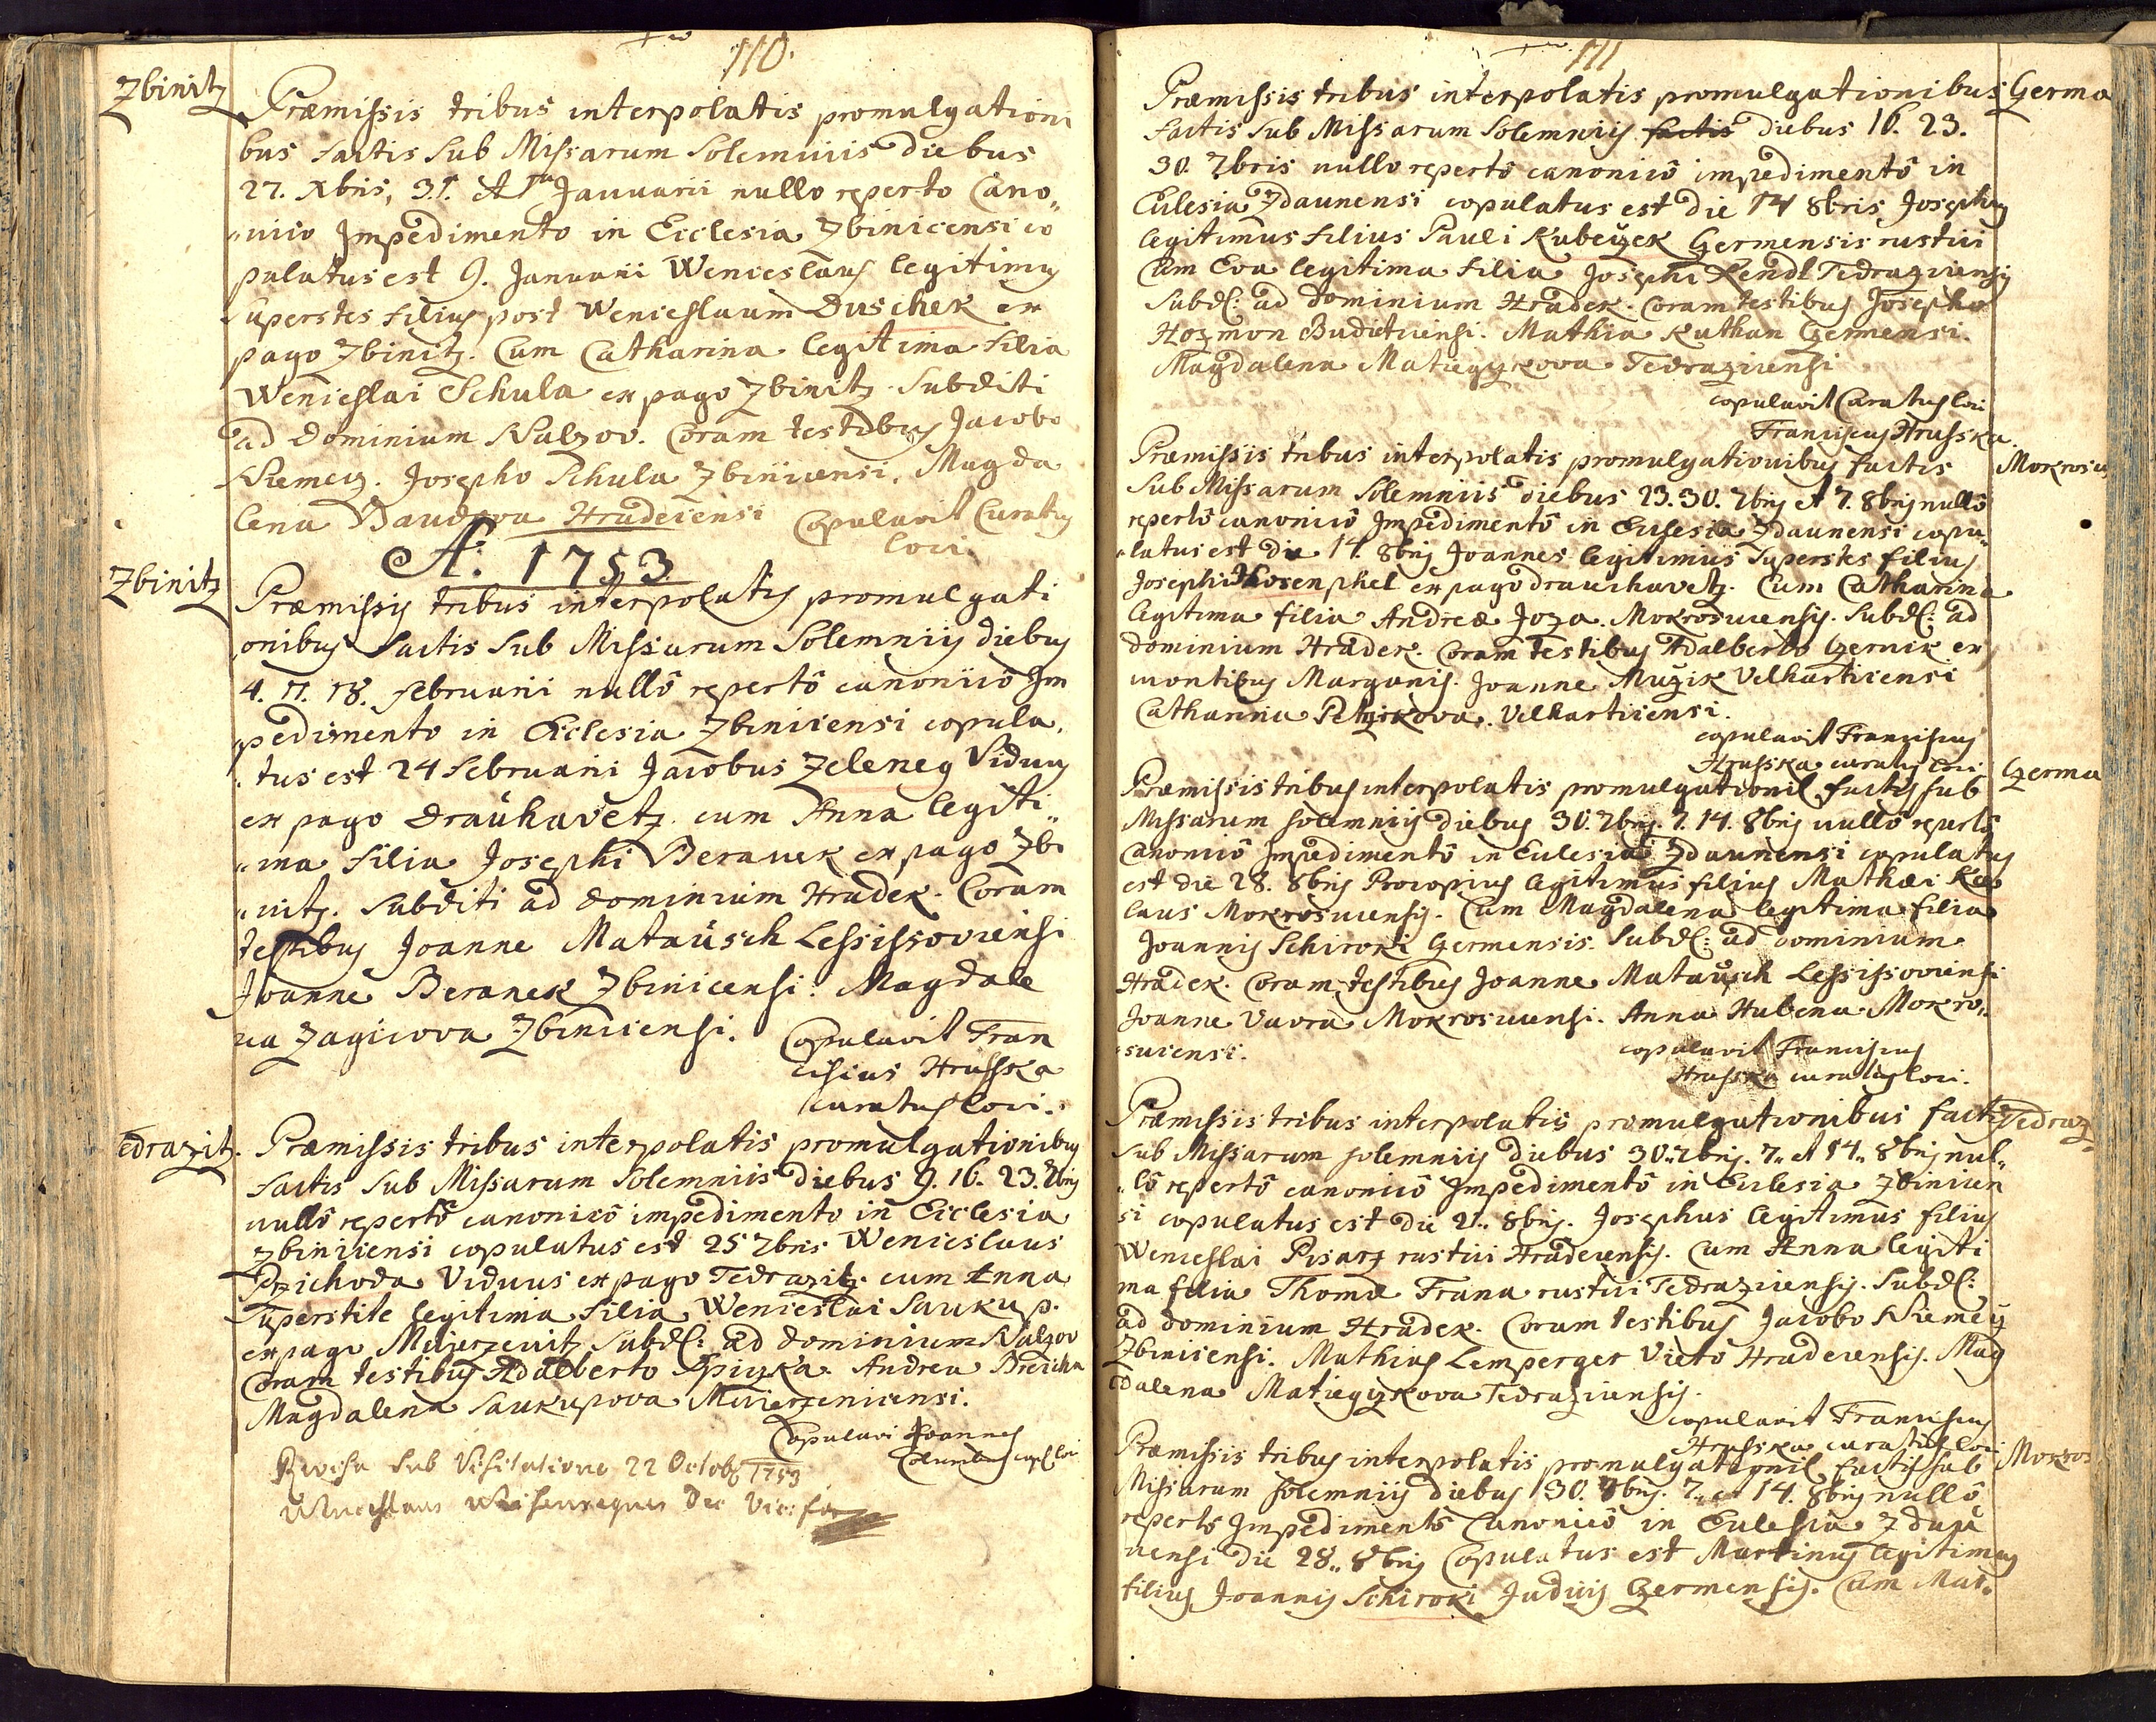 110.
Zbinitz
Præmissis tribus interpolatis promulgationi
bus factis sub Missarum Solemniis diebus
27. Xbris, 31. Januarii nullo reperto Cano„
„nico Impedimento in Ecclesia Zbinicensi co
pulatus est 9. Januarii Wenceslaus legitimus
Superstes filius post Wenceslaum Duschek ex
pago Zbinitz. Cum Catharina legitima filia
Wenceslai Schula ex pago Zbinitz. Subditi
ad Dominium Nalzov. Coram testibus Jacobo
Niemecz. Josepho Schula Zbinicensi, Magda
lena Hradecensi Copulavit Curatus
loci.
A: 1753
Zbinitz
Præmissis tribus interpolatis promulgati
onibus factis sub Missarum Solemniis diebus
4. 11. 18. februarii nullô repertô canonicô Im
pedimento in Ecclesia Zbinicensi copula„
„tus est 24 februarii Jacobus Zeleney Viduus
ex pago Drauhavetz cum Anna legiti„
„ma filia Josephi Beranek ex pago Zbi
„nitz. Subditi ad Dominium Hradek. Coram
testibus Joanne Matausch Lessissoviensi
Joanne Beranek Zbinicensi. Magdale
na Zagicova Zbinicensi. Copulavit Fran
ciscus Hrusska
curatus loci.
Tedrazitz.
Præmissis tribus interpolatis promulgationibus
factis sub Missarum Solemniis diebus 9. 16. 23. 7bris
nullô repertô canonicô impedimento in Ecclesia
Zbinicensi copulatus est 25 7bris Wenceslaus
Przichoda Viduus ex pago Tedrazitz cum Anna
Superstite legitima filia Wenceslai Saukup.
ex pago Subd: ad Dominium Nalzov
Coram testibus Adalberto Spizka. Andrea
Magdalena Saukupova
Copulavi Joannes
loci
sub Visitatione 22 Octob 1753
111
Præmissis tribus interpolatis promulgationibus Germa
factis sub Missarum Solemniis factis diebus 16. 23.
30. 7bris nullo repertô canonicô impedimentô in
Eclesia Zdaunensi copulatus est die 14 8bris Josephus
legitimus filius Pauli Kubeczek Germensis rustici
Cum Eva legitima filia Josephi Rendl Tedrazicensis
Subd: ad Dominium Hradek. Coram testibus Josepho
Hozmon Budieticensi. Mathia Kuthan Czermensi.
Magdalena Matiegczkova Tedrazicensi
copulavit Curatus loci
Franciscus Hrusska.
Præmissis tribus interpolatis promulgationibus factis Mokrosu
sub Missarum Solemniis diebus 23. 30. 7bris et 7. 8bris nullô
repertô canonicô Impedimentô in Eclesia Zdaunensi copu„
„latus est die 14. 8bris Joannes legitimus Superstes filius
Josephi ex pago drauchavetz. Cum Catharina
legitima filia Andreæ Joza. Mokrosucensis. Subd: ad
dominium Hradek. Coram testibus Adalberto Czernik ex
montibus Marganis. Joanne Muzik Velharticensi
Catharina Petzikova. Velharticensi.
copulavit Franciscus
Hrusska curatus loci
Præmissis tribus interpolatis promulgationib. factis sub Czerma
Missarum solemniis diebus 30. 7bris. 7. 14. 8bris nullô repertô
Canonicô Impedimentô in Eclesia Zdaunensi copulatus
est die 28. 8bris Procopius legitimus filius Mathæi
Mokrosucensis. Cum Magdalena legitima filia
Joannis Schiroki Czermensis. Subd: ad dominium
Hradek. Coram testibus Joanne Matausch Lessissoviensi
Joanne Vavra Mokrosucensi. Anna Hubena Mokro„
sucensi.
copulavit Franciscus
Hrusska curatus loci.
Præmissis tribus interpolatis promulgationibus factis Tedraz
sub Missarum solemniis diebus 30. 7bris. 7. et 14. 8bris nul„
„lô repertô canonicô Impedimentô in Eclesia Zbinicen
si copulatus est die 21. 8bris. Josephus legitimus filius
Wenceslai Pisarz rustici Hradecensis. Cum Anna legiti
ma filia Thomæ Frana rustici Tedrazicensis. Subd:
ad dominium Hradek. Coram testibus Jacobo Niemecz
Zbinicensi. Mathias Lemperger Hradecensis. Mag
dalena Matiegczkova Tedrazicensis.
copulavit Franciscus
Hrusska curatus loci
Præmissis tribus interpolatis promulgationib. factis sub Mokros
Missarum solemniis diebus 30. 7bris. 7. et 14. 8bris nullô
repertô Impedimentô Canonicô in Eclesia Zdau
nensi die 28. 8bris Copulatus est Martinus legitimus
filius Joannis Schiroki Judicis Czermensis. Cum Mar„